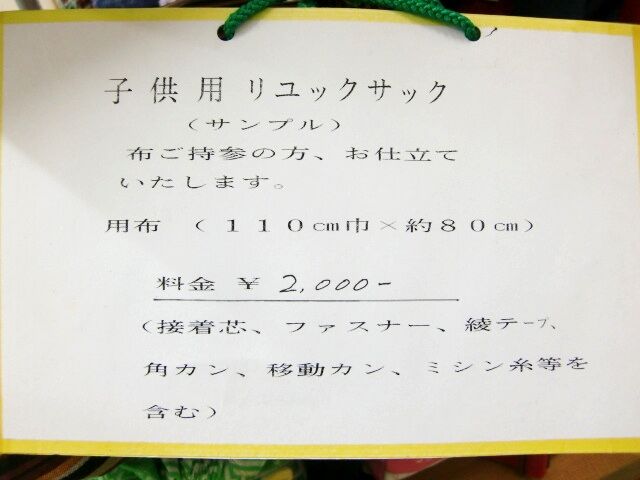 子供用リュックサック
(サンプル)
布ご持参の方、お仕立て
いたします。
用布 (110cm巾×約80cm)
料金 ¥ 2,000-
(接着芯、ファスナー、綾テープ、
角カン、移動カン、ミシン糸等を
含む)